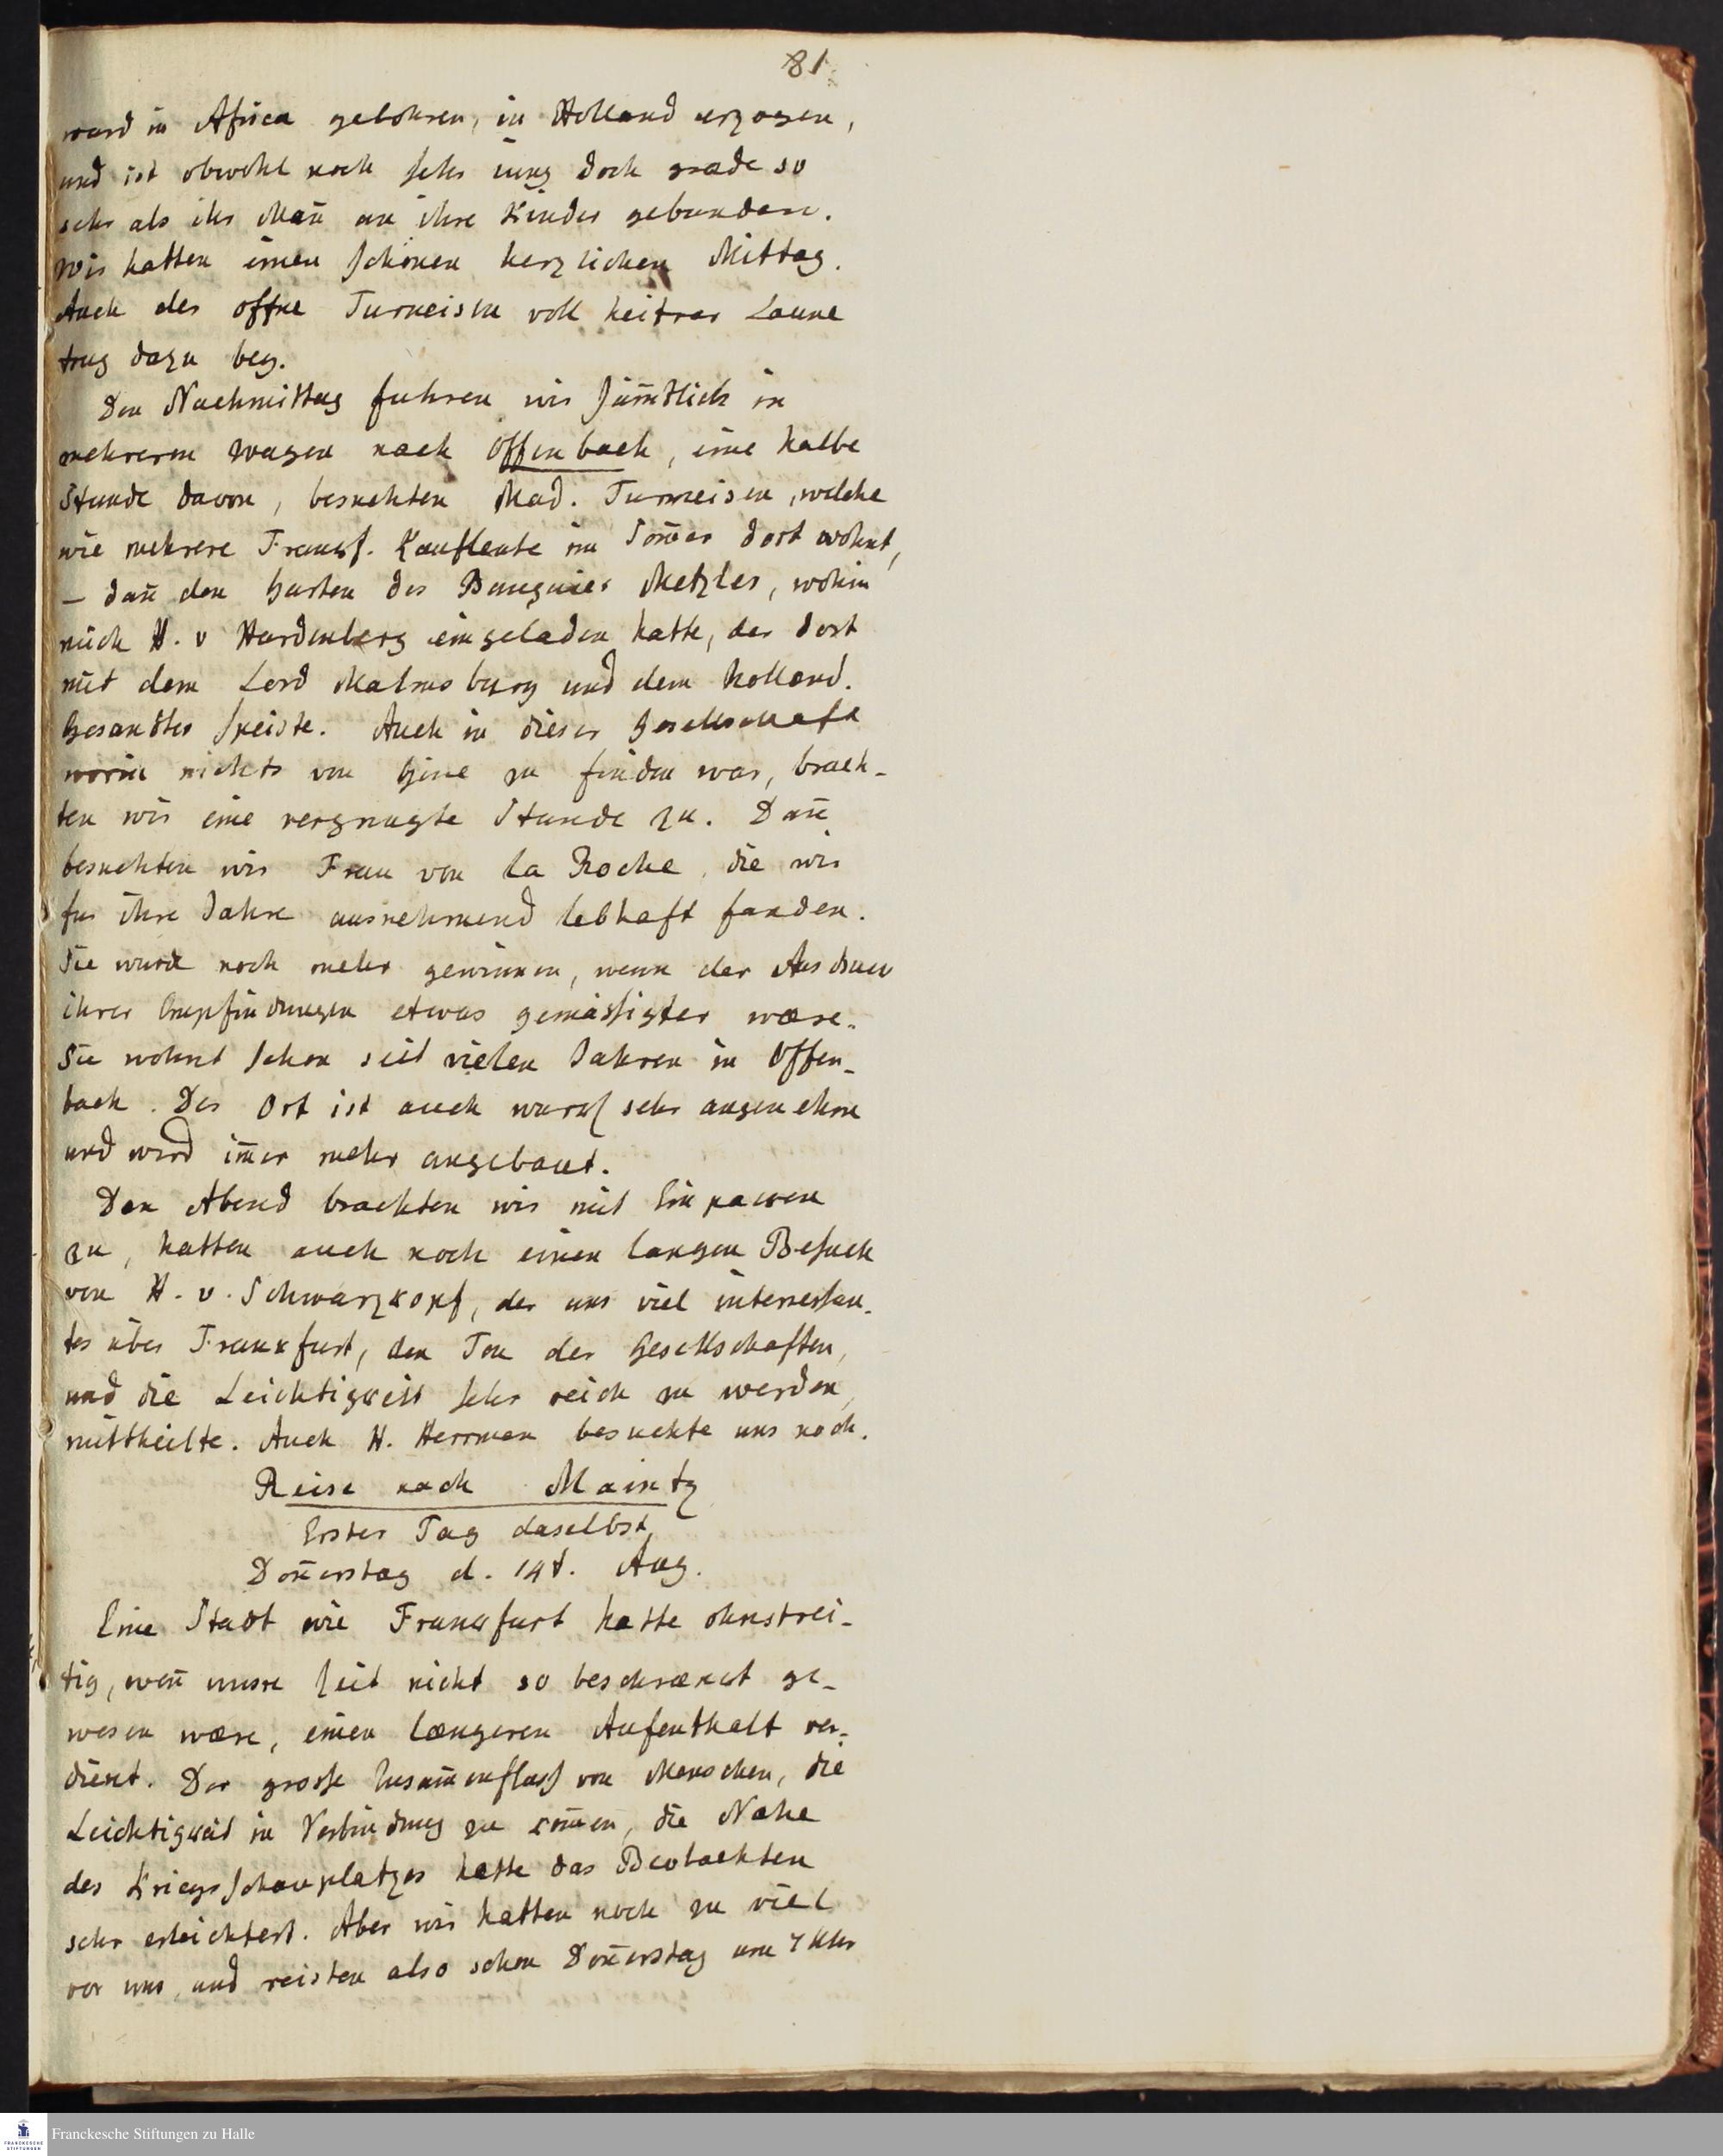 81.
ward in Africa gebohren, in Holland erzogen,
und ist obwohl noch sehr iung doch grade so
sehr als ihr Man̄ an ihre Kinder gebunden.
Wir hatten einen schönen herzlichen Mittag.
Auch der offne Turneisen voll heitrer Laune
trug dazu bey.
Den Nachmittag fuhren wir säm̄tlich in
mehreren Wagen nach Offenbach, eine halbe
Stunde davon, besuchten Mad. Turneisen, welche
wie mehrere Frankf. Kaufleute im Som̄er dort wohnt,
– dan̄ den Garten des Banquier Metzler, wohin
mich H. v Hardenberg eingeladen hatte, der dort
mit dem Lord Malmsburg und dem holland.
Gesandter speiste. Auch in dieser Gesellschaft
worin nichts von Gêne zu finden war, brach-
ten wir eine vergnugte Stunde zu. Dan̄
besuchten wir Frau von la Roche, die wir
fur ihre Jahre ausnehmend lebhaft fanden.
Sie wurde noch mehr gewinnen, wenn der Ausdruck
ihrer Empfindungen etwas gemässigter wære.
Sie wohnt schon seit vielen Jahren in Offen-
bach. Der Ort ist auch sehr angenehm
und wird im̄er mehr angebaut.
Den Abend brachten wir mit Einpacken
zu, hatten auch noch einen langen Besuch
von H. v. Schwarzkopf, der uns viel interessan-
tes über Frankfurt, den Ton der Gesellschaften,
und die Leichtigkeit sehr reich zu werden,
mittheilte. Auch H. Herrman besuchte uns noch.
Reise nach Maintz
Erster Tag daselbst,
Don̄erstag d. 14t. Aug.
Eine Stadt wie Frankfurt hatte ohnstrei-
tig, wen̄ unsre Zeit nicht so beschrænkt ge-
wesen wære, einen længeren Aufenthalt ver-
dient. Der grosse Zusam̄enfluss von Menschen, die
Leichtigkeit in Verbindung zu kom̄en, die Nahe
des Kriegsschauplatzes hatte das Beobachten
sehr erleichtert. Aber wir hatten noch zu viel
vor uns, und reisten also schon Don̄erstag um 7 Uhr
FRANCKESCHE STIFTUNGEN
Franckesche Stiftungen zu Halle